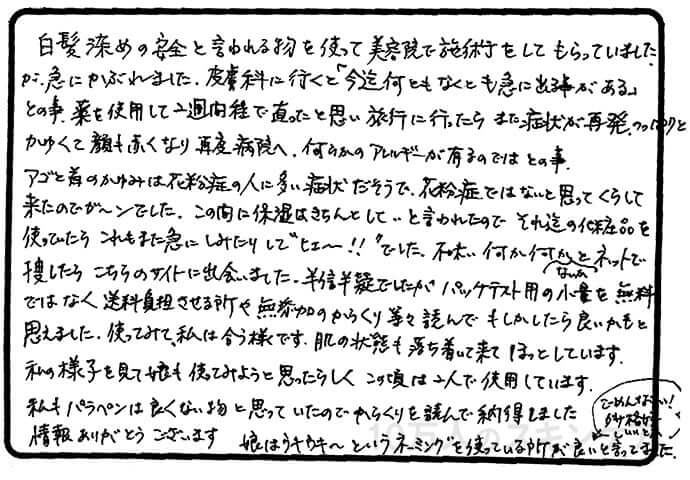 白髪染めの安全と言われる物を使って美容院で施術をしてもらっていました
が、急にかぶれました。皮膚科に行くと「今迄何ともなくとも急に出る事がある」
との事、薬を使用して2週間程で直ったと思い旅行に行ったら また症状が再発、
かゆくて顔も赤くなり再度病院へ、何らかのアレルギーが有るのではとの事、
アゴと首のかゆみは花粉症の人に多い症状だそうで、花粉症ではないと思ってくらして
来たのでガ〜ンでした。この間に保湿はきちんとして と言われたので それ迄の化粧品を
使っていたら これもまた急に しみたりして"ヒェ〜!!"でした。 何か何かとネットで
ないか
捜したら こちらのサイトに出会いました。半信半疑でしたが パッチテスト用の小量を無料
ではなく送料負担させる所や無添加のからくり等々読んで もしかしたら良いかもと
思えました。使ってみて、私は合う様です。肌の状態も落ち着いて来て ほっとしています。
私の様子を見て娘も使ってみようと思ったらしく この頃は2人で使用しています。
私もパラペンは良くない物と思っていたのでからくりを読んで納得しました
情報ありがとうございます 娘はウキウキ〜というネーミングを使っている所が良いと言ってました。
ごめんなさい!